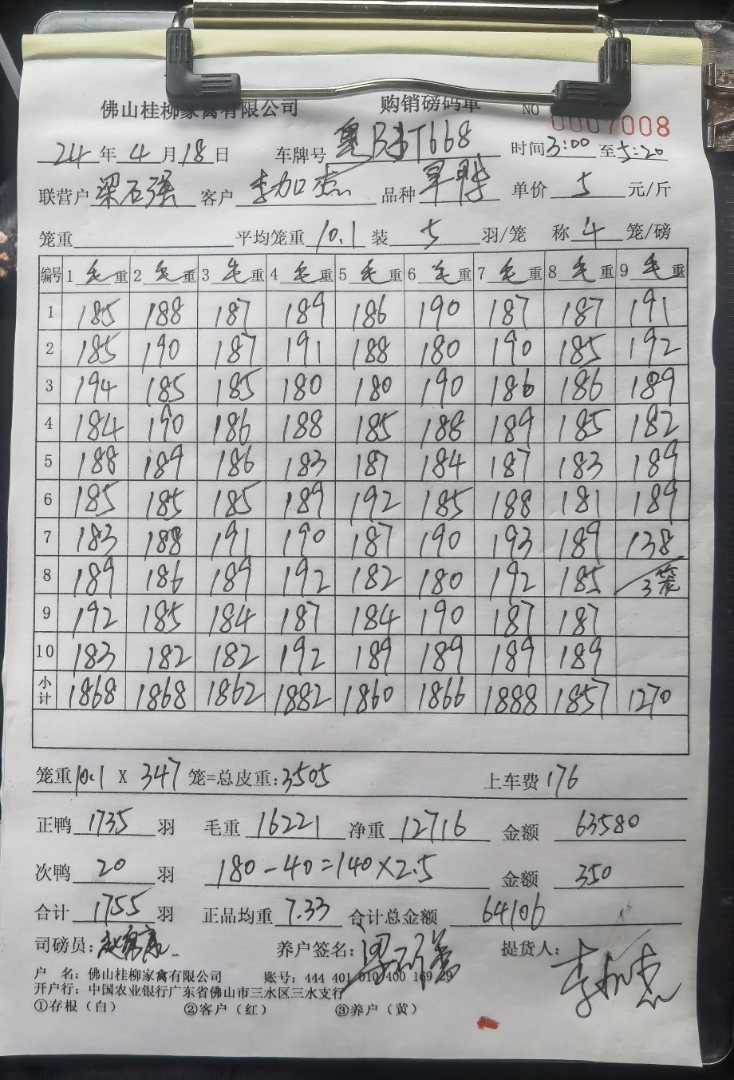 佛山桂柳家禽有限公司 购销磅码单 NO 0007008
24 年 4 月 18 日 车牌号 粤B T668 时间 3:00 至 5:20
联营户 梁石强 客户 李加杰 品种 旱鸭 单价 5 元/斤
笼重 平均笼重 10.1 装 5 羽/笼 称 4 笼/磅
编号 1 毛重 2 毛重 3 毛重 4 毛重 5 毛重 6 毛重 7 毛重 8 毛重 9 毛重
1 185 188 187 189 186 190 187 187 191
2 185 190 187 191 188 180 190 185 192
3 194 185 185 180 180 190 186 186 189
4 184 190 186 188 185 188 189 185 182
5 188 189 186 183 187 184 187 183 189
6 185 185 185 189 192 185 188 181 189
7 183 188 191 190 187 190 193 189 138
8 189 186 189 192 182 180 192 185 3笼
9 192 185 184 187 184 190 187 187
10 183 182 182 192 189 189 189 189
小计 1868 1868 1862 1882 1860 1866 1888 1857 1270
笼重 10.1 X 347 笼=总皮重:3505 上车费 176
正鸭 1735 羽 毛重 16221 净重 12716 金额 63580
次鸭 20 羽 180-40=140×2.5 金额 350
合计 1755 羽 正品均重 7.33 合计总金额 64106
司磅员: 养户签名: 提货人:
户 名: 佛山桂柳家禽有限公司 账号: 444 401 010 400 169 29
开户行: 中国农业银行广东省佛山市三水区三水支行
①存根(白) ②客户(红) ③养户(黄)
李加杰